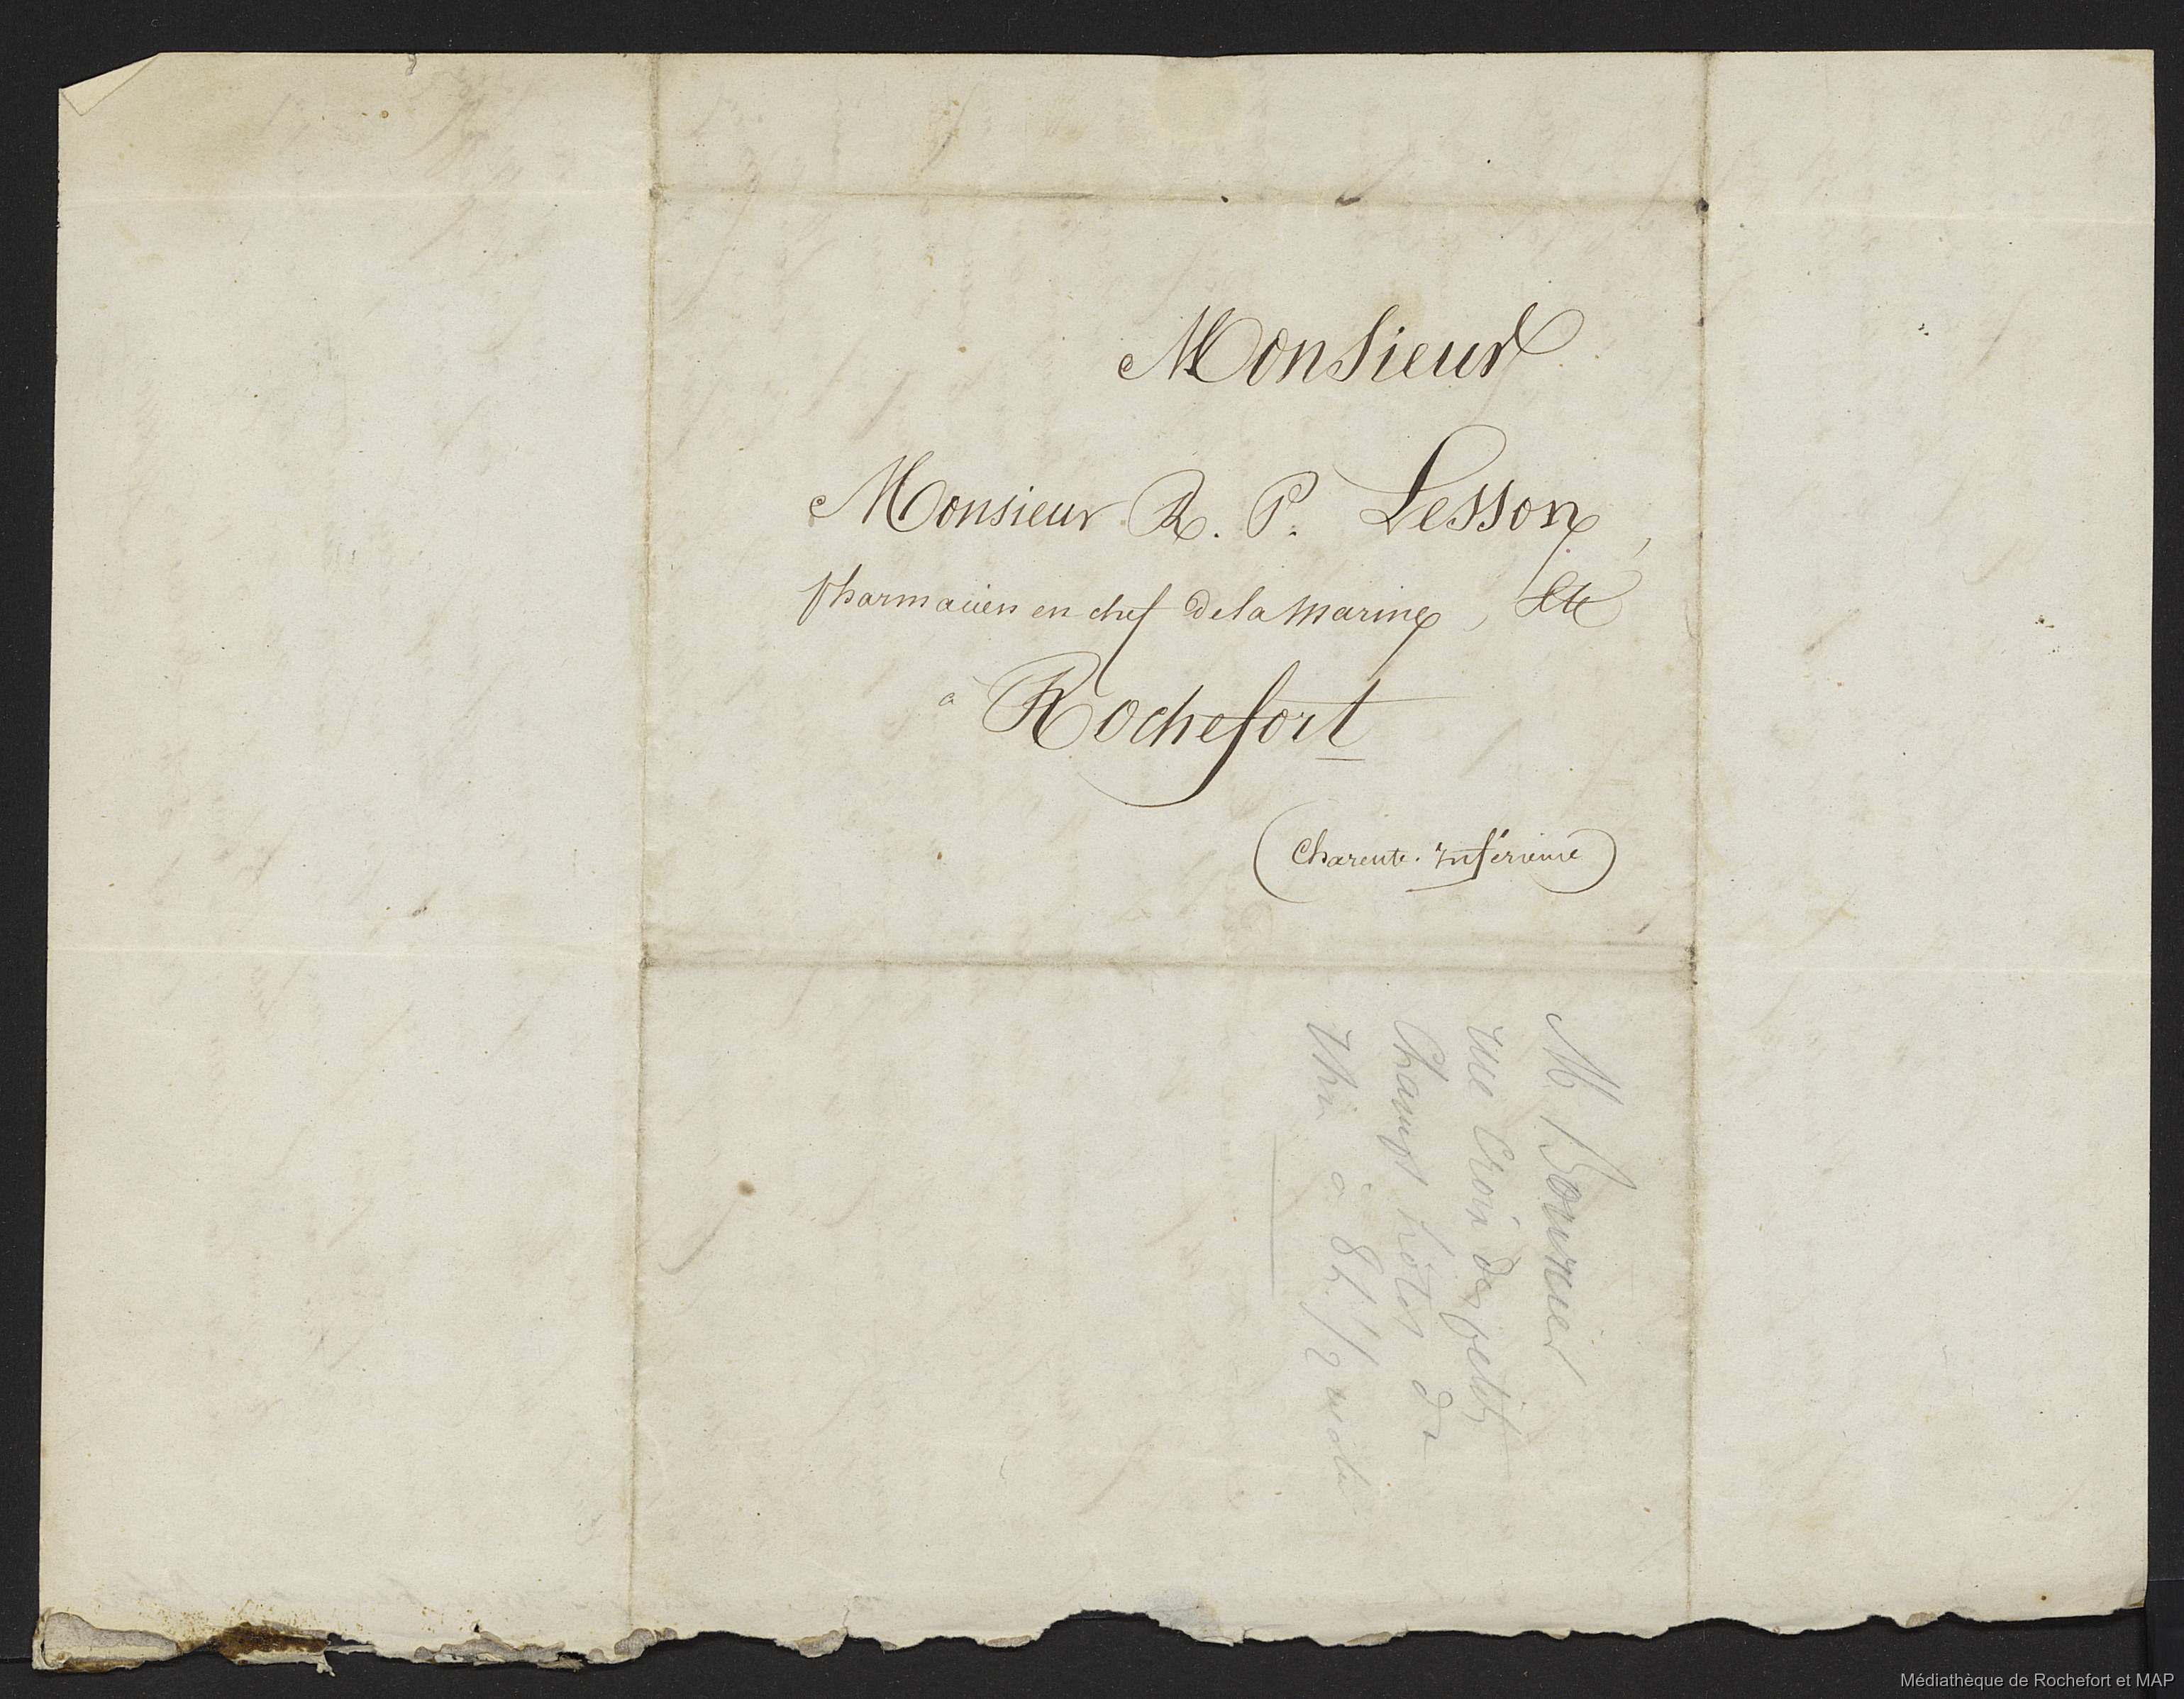 Monsieur
Monsieur R. P. Lesson,
pharmacien en chef de la marine, Etc
à Rochefort
(Charente. Inférieure)
M. Bournier
rue Croix des petits
Champs hôtel de
à 8h. 1/2
Médiathèque de Rochefort et MAP